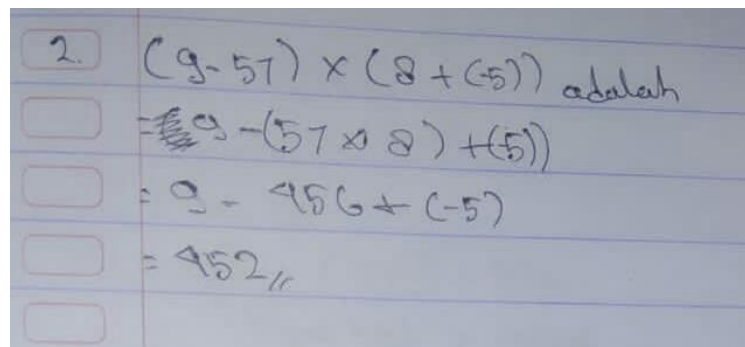 2. (9-57) × (8 + (-5)) adalah
= 9 - (57 × 8) + (-5))
= 9 - 456 + (-5)
= 452 //